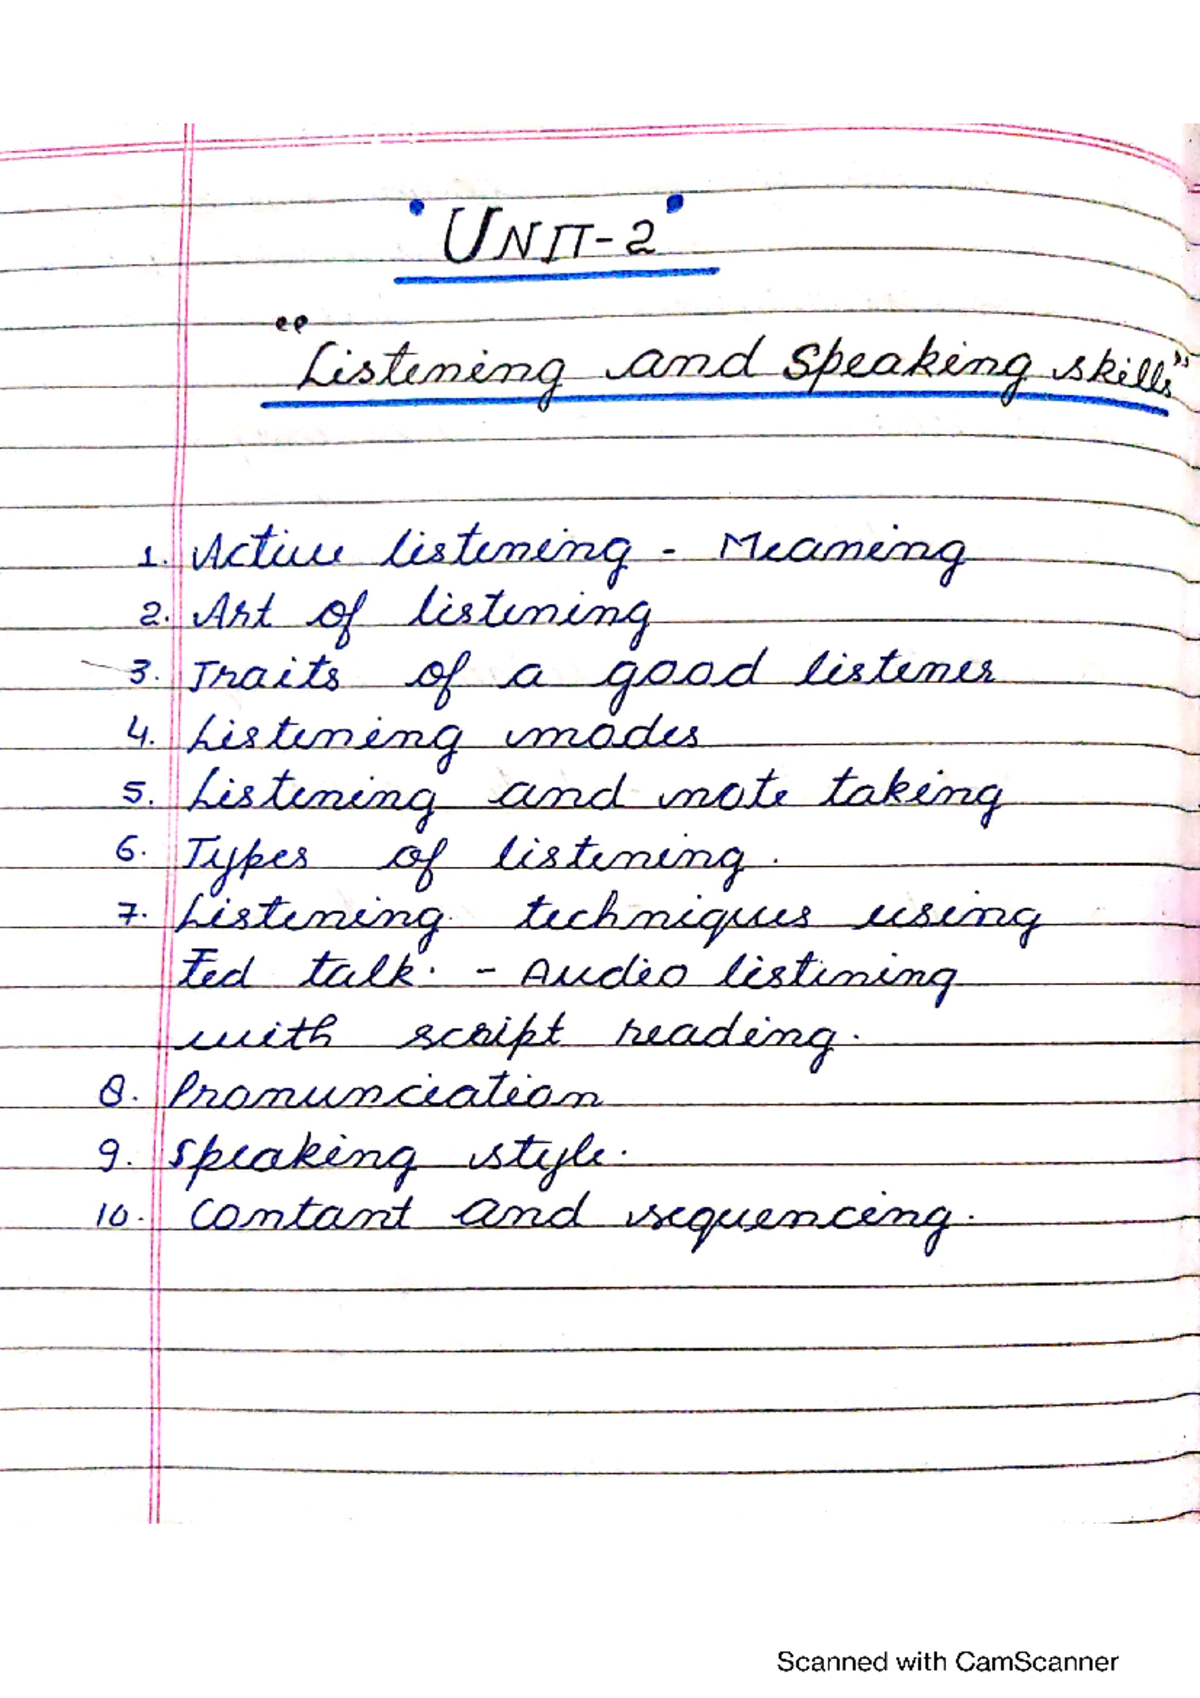 UNIT-2
"Listening and Speaking skills"
1. Active listening - Meaning
2. Art of listening
3. Traits of a good listener
4. Listening modes
5. Listening and note taking
6. Types of listening.
7. Listening techniques using
Ted talk. - Audio listining
with script reading.
8. Pronunciation
9. Speaking style.
10. Contant and sequencing.
Scanned with CamScanner